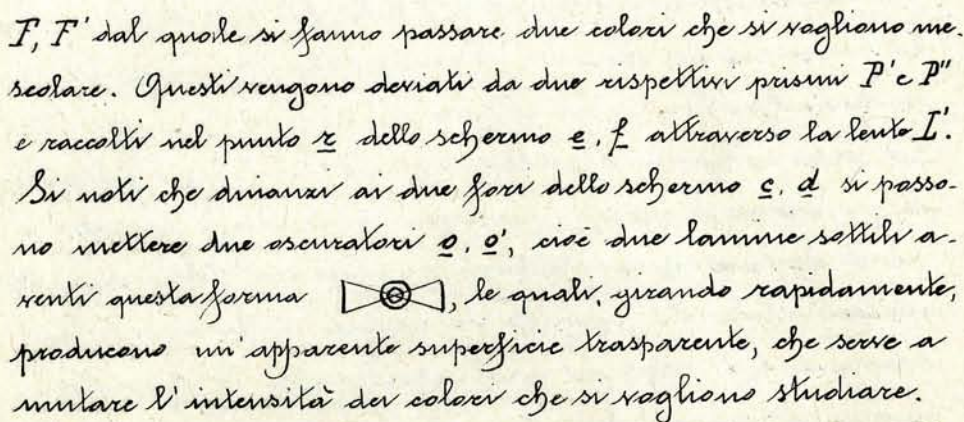 F, F' dal quale si fanno passare due colori che si vogliono me-
scolare. Questi vengono deviati da due rispettivi prismi P' e P"
e raccolti nel punto r dello schermo e, f attraverso la lente L'.
Si noti che dinanzi ai due fori dello schermo c, d si posso-
no mettere due oscuratori o, o', cioè due lamine sottili a-
venti questa forma , le quali, girando rapidamente,
producono un'apparente superficie trasparente, che serve a
mutare l'intensità dei colori che si vogliono studiare.